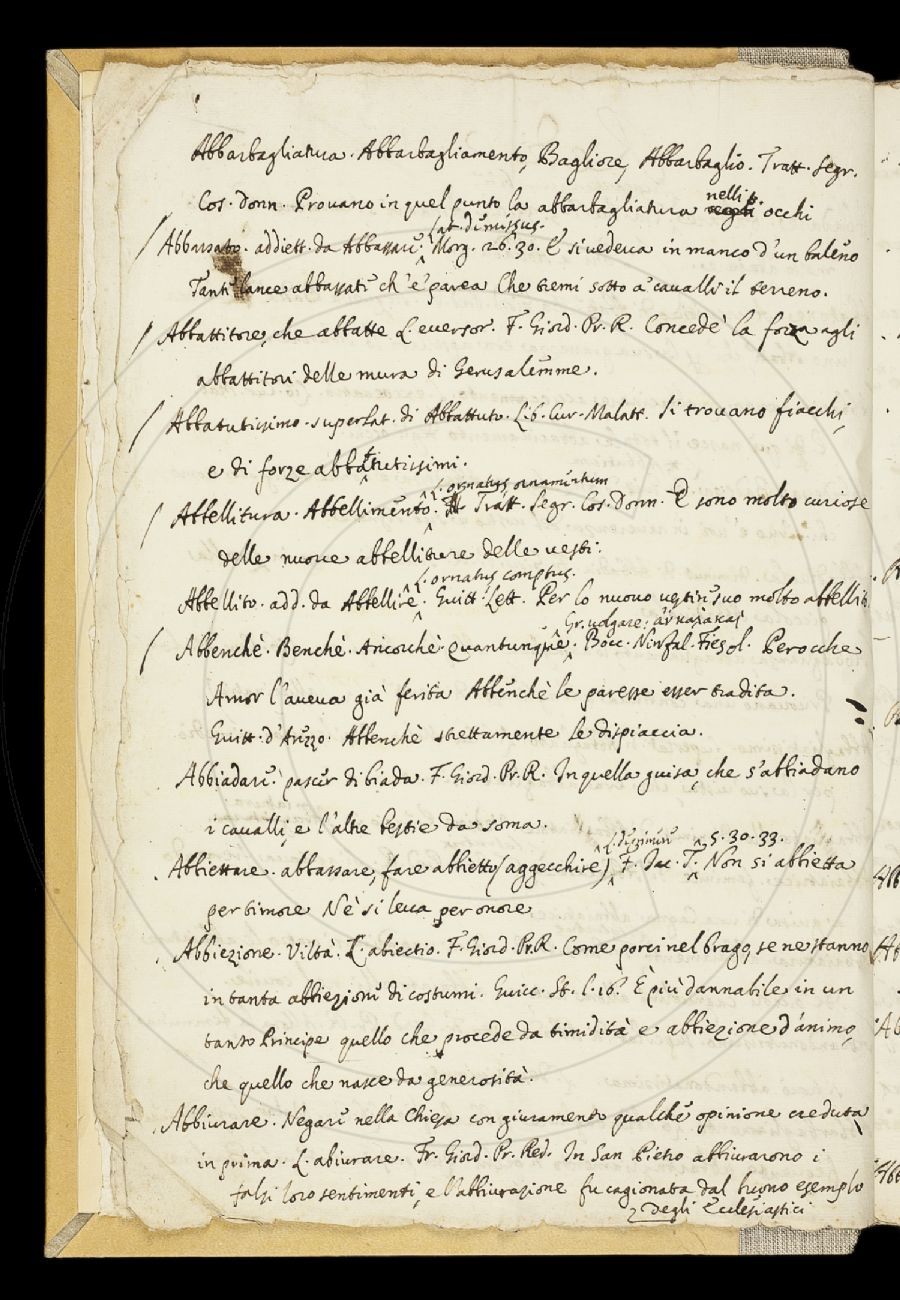 Abbarbagliatura. Abbarbagliamento, Bagliore, Abbarbaglio. Tratt. segr.
Cos. Donn. Provano in quel punto la abbarbagliatura nelli occhi
Abbassato. addiett. da Abbassare. Lat. dimissus. Morg. 26. 30. E si vedeva in manco d'un baleno
Tante lance abbassate ch'e' parea Che tremi sotto a' cavalli il terreno.
Abbattitore, che abbatte L. eversor. F. Giord. Pr. R. Concedè la forza agli
abbattitori delle mura di Gerusalemme.
Abbatutissimo. superlat. di Abbattuto. Lib. Cur. Malatt. Si trovano fiacchi,
e di forze abbattutissimi.
Abbellitura. Abbellimento. L. ornatus ornamentum Tratt. Segr. Cos. Donn. E sono molto curiose
delle nuove abbelliture delle vesti.
Abbellito. add. da Abbellire. L. ornatus comptus. Guitt. Lett. Per lo nuovo vestir suo molto abbellito
Abbenchè. Benchè. Ancorchè. Quantunque. Gr. volgare. Bocc. Ninfal. Fiesol. Perocche
Amor l'aveva già ferita Abbenchè le paresse esser tradita.
Guitt. d'Arezzo. Abbenchè strettamente le dispiaccia.
Abbiadare. pascer di biada. F. Giord. Pr. R. In quella guisa, che s'abbiadano
i cavalli, e l'altre bestie da soma.
Abbiettare. abbassare, fare abbietto (aggecchire) F. Iac. T. 5. 30. 33. Non si abbietta
per timore Nè si leva per onore
Abbiezione. Viltà. L. abiectio. F. Giord. Pr. R. Come porci nel brago, se ne stanno
in tanta abbiezione di costumi. Guicc. St. l. 16. È più dannabile in un
tanto Principe quello che procede da timidità e abbiezione d'animo,
che quello che nasce da generosità.
Abbiurare. Negare nella Chiesa con giuramento qualche opinione creduta
in prima. L. abiurare. Fr. Giord. Pr. Red. In San Pietro abbiurarono i
falsi loro sentimenti, e l'abbiurazione fu cagionata dal buono esemplo
degli Ecclesiastici